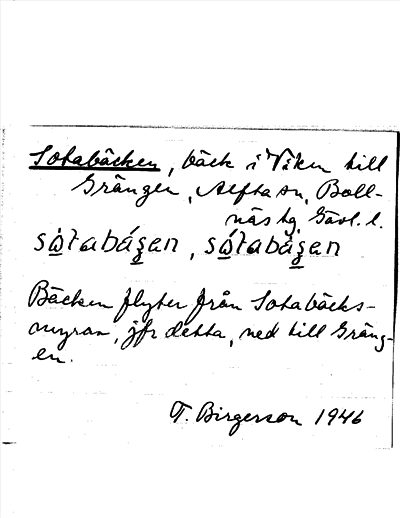 Sotabäcken, bäck i Viken till
Grängen, Alfta sn, Boll-
näs tg, Gävl. l.
sotabázen, sótabázen
Bäcken flyter från Sotabäcks-
myran, jfr detta, ned till Gräng-
en.
T. Birgerson 1946